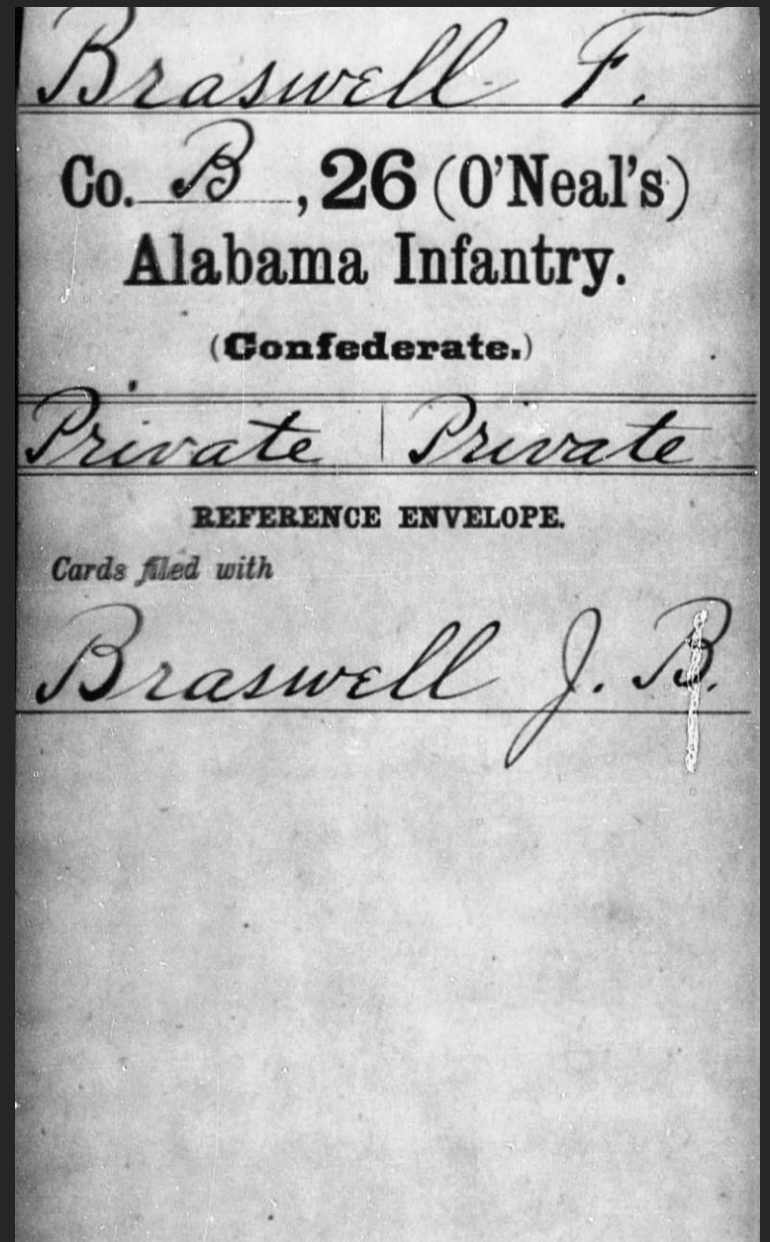 Braswell F.
Co. B, 26 (O'Neal's)
Alabama Infantry.
(Confederate.)
Private | Private
REFERENCE ENVELOPE.
Cards filed with
Braswell J. B.